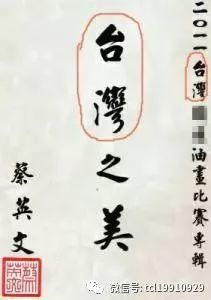 二〇一一台灣 油畫比賽專輯
台灣之美
蔡英文
微信号: tcl19910929